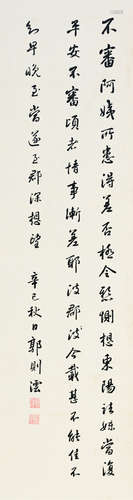 不審阿姨所患得差否極令懸惻想東陽諸妹當復
平安不審頃者情事漸差耶彼郡今載甚不能佳不
知早晚至當遂至郡深想望
辛巳秋日郭則澐